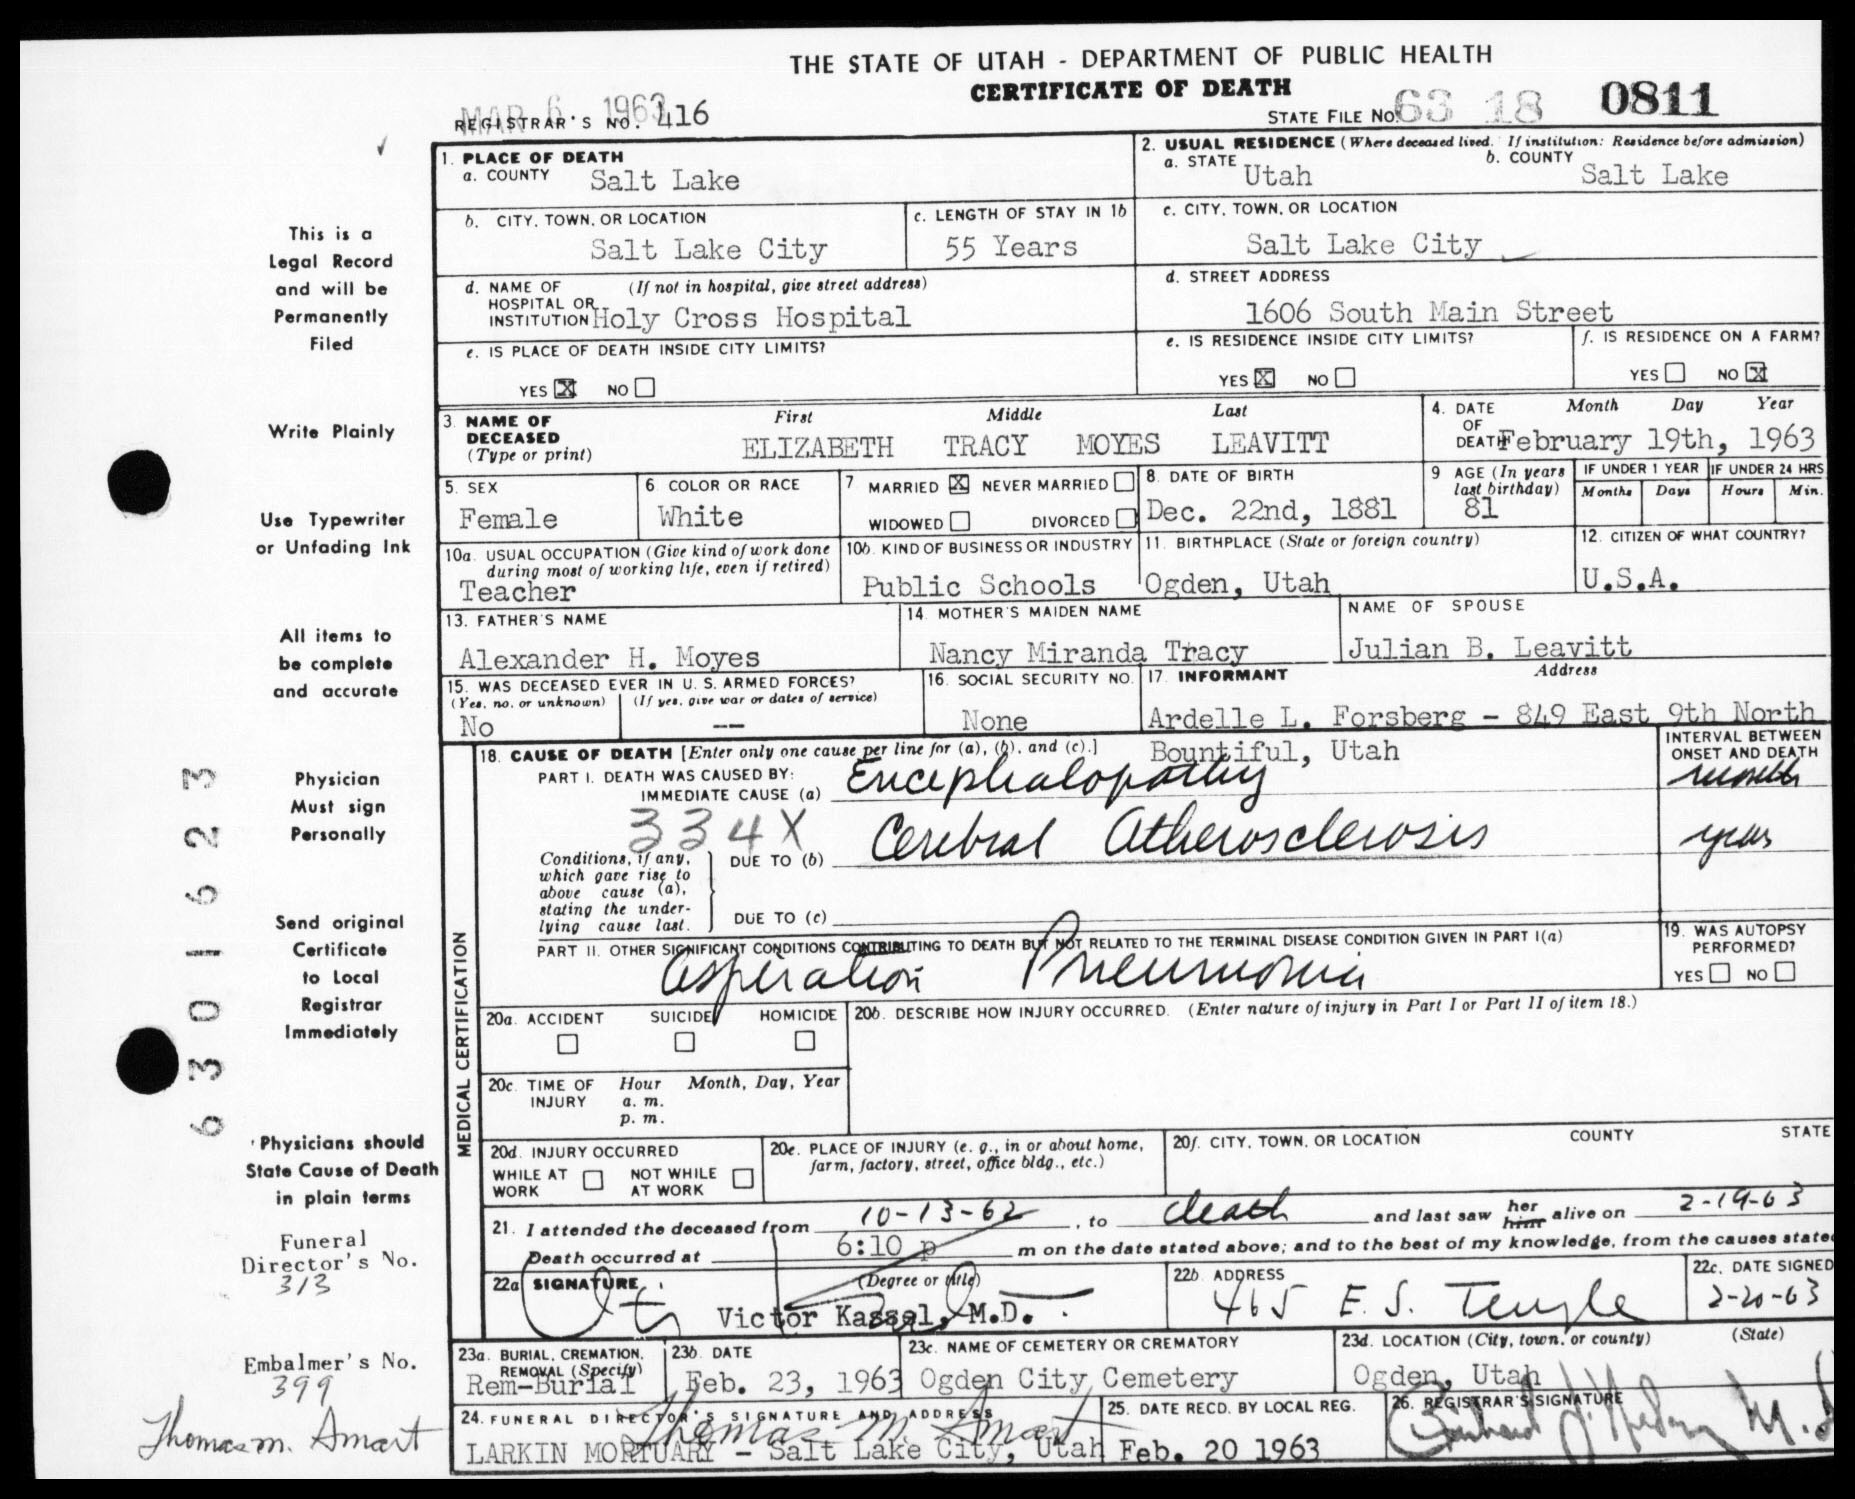 THE STATE OF UTAH - DEPARTMENT OF PUBLIC HEALTH
CERTIFICATE OF DEATH
MAR 6 1963
REGISTRAR'S NO. 416
STATE FILE NO. 63 18 0811
1. PLACE OF DEATH
a. COUNTY Salt Lake
2. USUAL RESIDENCE (Where deceased lived. If institution: Residence before admission)
a. STATE Utah b. COUNTY Salt Lake
b. CITY, TOWN, OR LOCATION
Salt Lake City
c. LENGTH OF STAY IN 1b
55 Years
c. CITY, TOWN, OR LOCATION
Salt Lake City
d. NAME OF (If not in hospital, give street address)
HOSPITAL OR
INSTITUTION Holy Cross Hospital
d. STREET ADDRESS
1606 South Main Street
e. IS PLACE OF DEATH INSIDE CITY LIMITS?
YES X NO
e. IS RESIDENCE INSIDE CITY LIMITS?
YES X NO
f. IS RESIDENCE ON A FARM?
YES NO X
3. NAME OF DECEASED (Type or print)
First Middle Last
ELIZABETH TRACY MOYES LEAVITT
4. DATE OF DEATH Month Day Year
February 19th, 1963
5. SEX
Female
6 COLOR OR RACE
White
7 MARRIED X NEVER MARRIED
WIDOWED DIVORCED
8. DATE OF BIRTH
Dec. 22nd, 1881
9 AGE (In years last birthday)
81
IF UNDER 1 YEAR
Months Days
IF UNDER 24 HRS
Hours Min.
10a. USUAL OCCUPATION (Give kind of work done during most of working life, even if retired)
Teacher
10b. KIND OF BUSINESS OR INDUSTRY
Public Schools
11. BIRTHPLACE (State or foreign country)
Ogden, Utah
12. CITIZEN OF WHAT COUNTRY?
U.S.A.
13. FATHER'S NAME
Alexander H. Moyes
14. MOTHER'S MAIDEN NAME
Nancy Miranda Tracy
NAME OF SPOUSE
Julian B. Leavitt
15. WAS DECEASED EVER IN U. S. ARMED FORCES?
(Yes, no, or unknown) (If yes, give war or dates of service)
No --
16. SOCIAL SECURITY NO.
None
17. INFORMANT Address
Ardelle L. Forsberg - 849 East 9th North
Bountiful, Utah
MEDICAL CERTIFICATION
18. CAUSE OF DEATH [Enter only one cause per line for (a), (b), and (c).]
INTERVAL BETWEEN ONSET AND DEATH
PART I. DEATH WAS CAUSED BY:
IMMEDIATE CAUSE (a) Encephalopathy months
334X
Conditions, if any, which gave rise to above cause (a), stating the underlying cause last.
DUE TO (b) Cerebral Atherosclerosis years
DUE TO (c)
PART II. OTHER SIGNIFICANT CONDITIONS CONTRIBUTING TO DEATH BUT NOT RELATED TO THE TERMINAL DISEASE CONDITION GIVEN IN PART I(a)
Aspiration Pneumonia
19. WAS AUTOPSY PERFORMED?
YES NO
20a. ACCIDENT SUICIDE HOMICIDE
20b. DESCRIBE HOW INJURY OCCURRED. (Enter nature of injury in Part I or Part II of item 18.)
20c. TIME OF INJURY Hour Month, Day, Year
a. m.
p. m.
20d. INJURY OCCURRED
WHILE AT WORK NOT WHILE AT WORK
20e. PLACE OF INJURY (e. g., in or about home, farm, factory, street, office bldg., etc.)
20f. CITY, TOWN, OR LOCATION COUNTY STATE
21. I attended the deceased from 10-13-62, to death and last saw her him alive on 2-19-63
Death occurred at 6:10 p m on the date stated above; and to the best of my knowledge, from the causes stated
22a SIGNATURE (Degree or title)
Victor Kassel, M.D.
22b ADDRESS
465 E. S. Temple
22c. DATE SIGNED
2-20-63
23a. BURIAL, CREMATION, REMOVAL (Specify)
Rem-Burial
23b. DATE
Feb. 23, 1963
23c. NAME OF CEMETERY OR CREMATORY
Ogden City Cemetery
23d. LOCATION (City, town, or county) (State)
Ogden, Utah
24. FUNERAL DIRECTOR'S SIGNATURE AND ADDRESS
Thomas M. Smart
LARKIN MORTUARY - Salt Lake City, Utah
25. DATE RECD. BY LOCAL REG.
Feb. 20 1963
26. REGISTRAR'S SIGNATURE
This is a
Legal Record
and will be
Permanently
Filed
Write Plainly
Use Typewriter
or Unfading Ink
All items to
be complete
and accurate
Physician
Must sign
Personally
Send original
Certificate
to Local
Registrar
Immediately
Physicians should
State Cause of Death
in plain terms
Funeral
Director's No.
313
Embalmer's No.
399
Thomas M. Smart
6301623